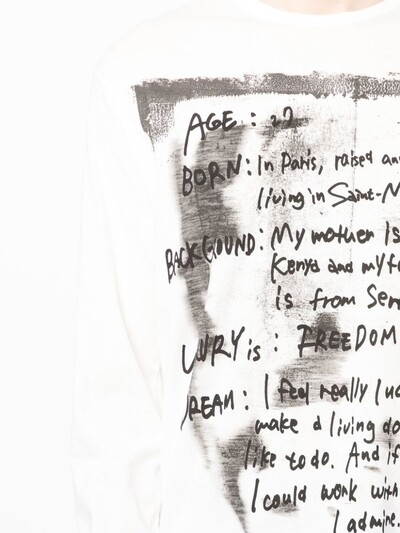 AGE : 27
BORN: In Paris, raised an
living in Saint-
BACKGOUND: My mother is
Kenya and my f
is from Sen
URY is : FREEDOM
REAM : I feel really lu
make a living do
like to do. And if
I could work with
I admire.